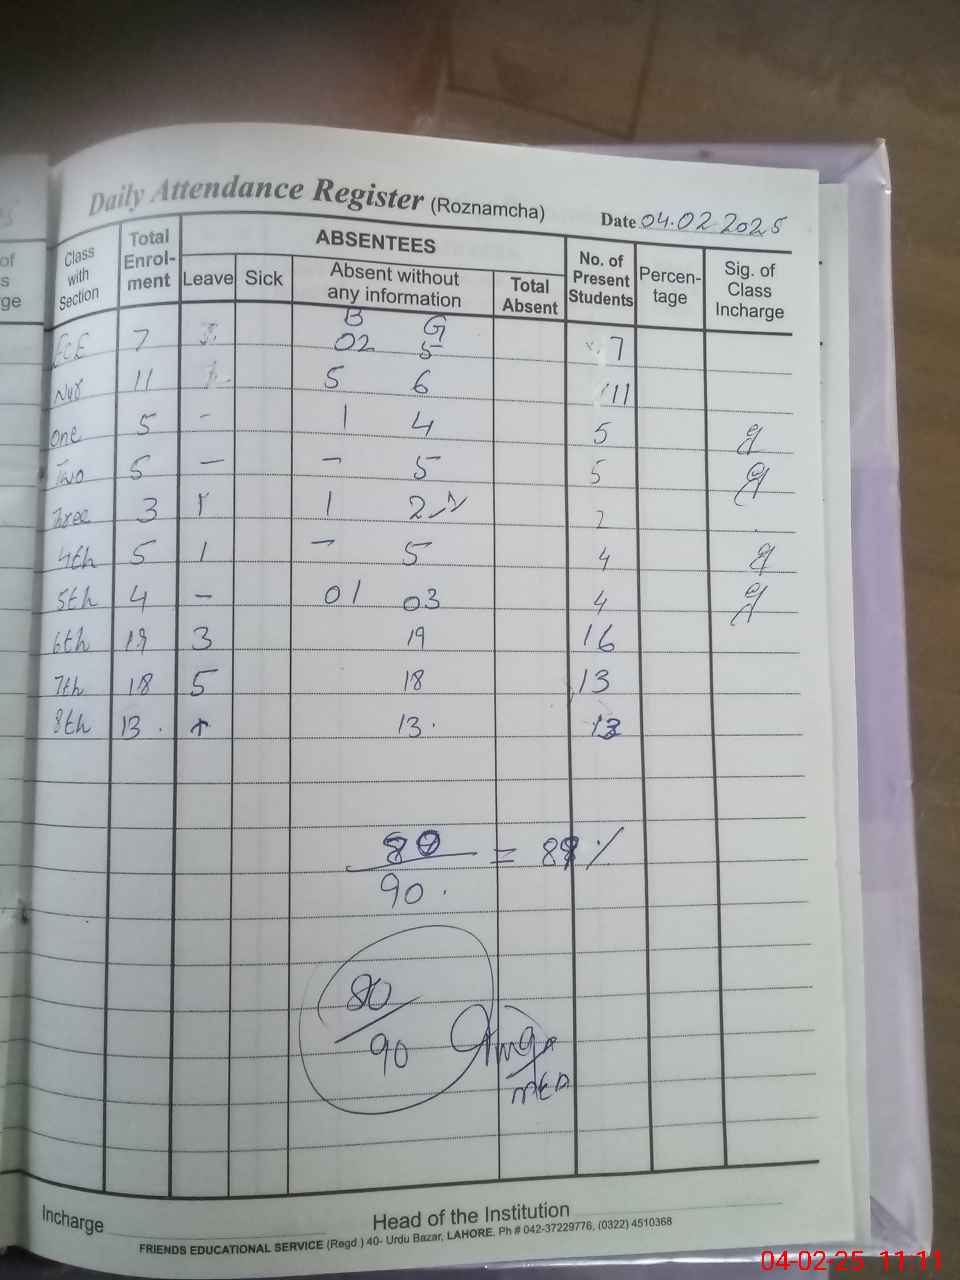 Daily Attendance Register (Roznamcha) Date 04.02.2025
Class with Section
Total Enrol-ment
ABSENTEES
Leave
Sick
Absent without any information
Total Absent
No. of Present Students
Percen-tage
Sig. of Class Incharge
B G
ECE 7 02 5 7
Nur 11 5 6 11
One 5 - 1 4 5
Two 5 - - 5 5
Three 3 1 1 2 2
4th 5 1 - 5 4
5th 4 - 01 03 4
6th 19 3 19 16
7th 18 5 18 13
8th 13 13 13
80
90 = 89%
80
90
MEA
Incharge
Head of the Institution
FRIENDS EDUCATIONAL SERVICE (Regd.) 40- Urdu Bazar, LAHORE. Ph # 042-37229776, (0322) 4510368
04-02-25 11:11